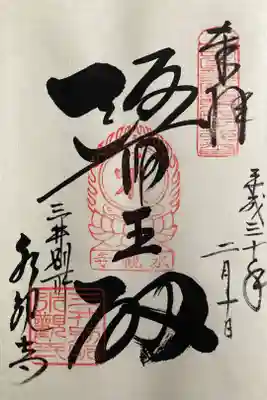 奉拝
平成三十年
二月十日
醫王殿
三井別所
水観寺
水観寺